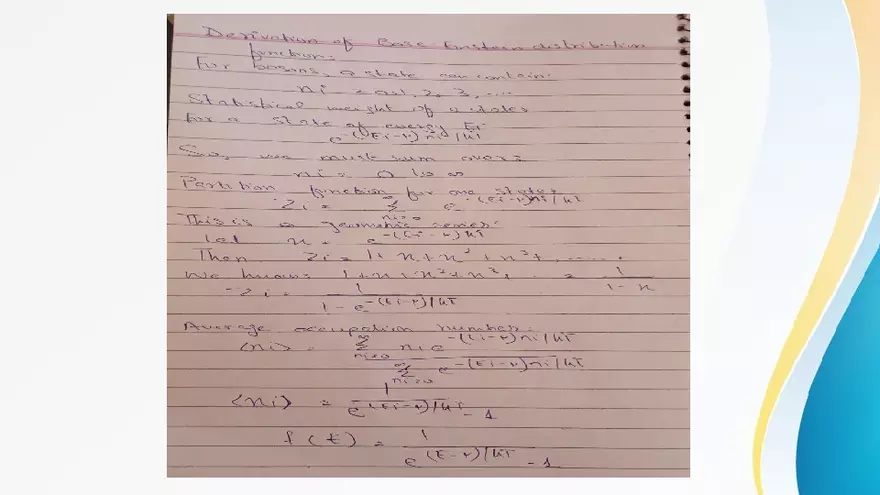 Derivation of Bose Einstein distribution
function:
For bosons, a state can contain:
ni = 0,1, 2, 3, ....
Statistical weight of a states
for a state of energy Ei
e^-(Ei-μ)ni/kT
So, we must sum over:
ni = 0 to ∞
Partition function for one states
Zi = ∞Σni=0 e^-(Ei-μ)ni/kT
This is a geometric series:
Let x = e^-(Ei-μ)/kT
Then Zi = 1+x+x²+x³+.....
We know: 1+x+x²+x³+ = 1/1-x
Zi = 1/1-e^-(Ei-μ)/kT
Average occupation number:
⟨ni⟩ = ∞Σni=0 ni e^-(Ei-μ)ni/kT
∞Σni=0 e^-(Ei-μ)ni/kT
⟨ni⟩ = 1/e^(Ei-μ)/kT - 1
f(E) = 1/e^(E-μ)/kT - 1